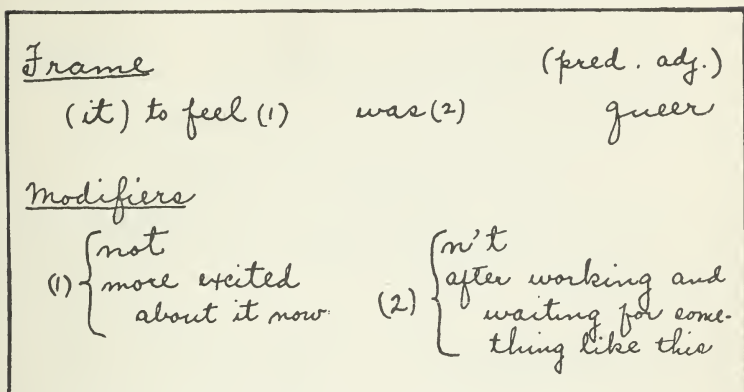 Frame (pred. adj.)
(it) to feel (1) was (2) queer
Modifiers
(1) { not
more excited
about it now
(2) { n't
after working and
waiting for some-
thing like this